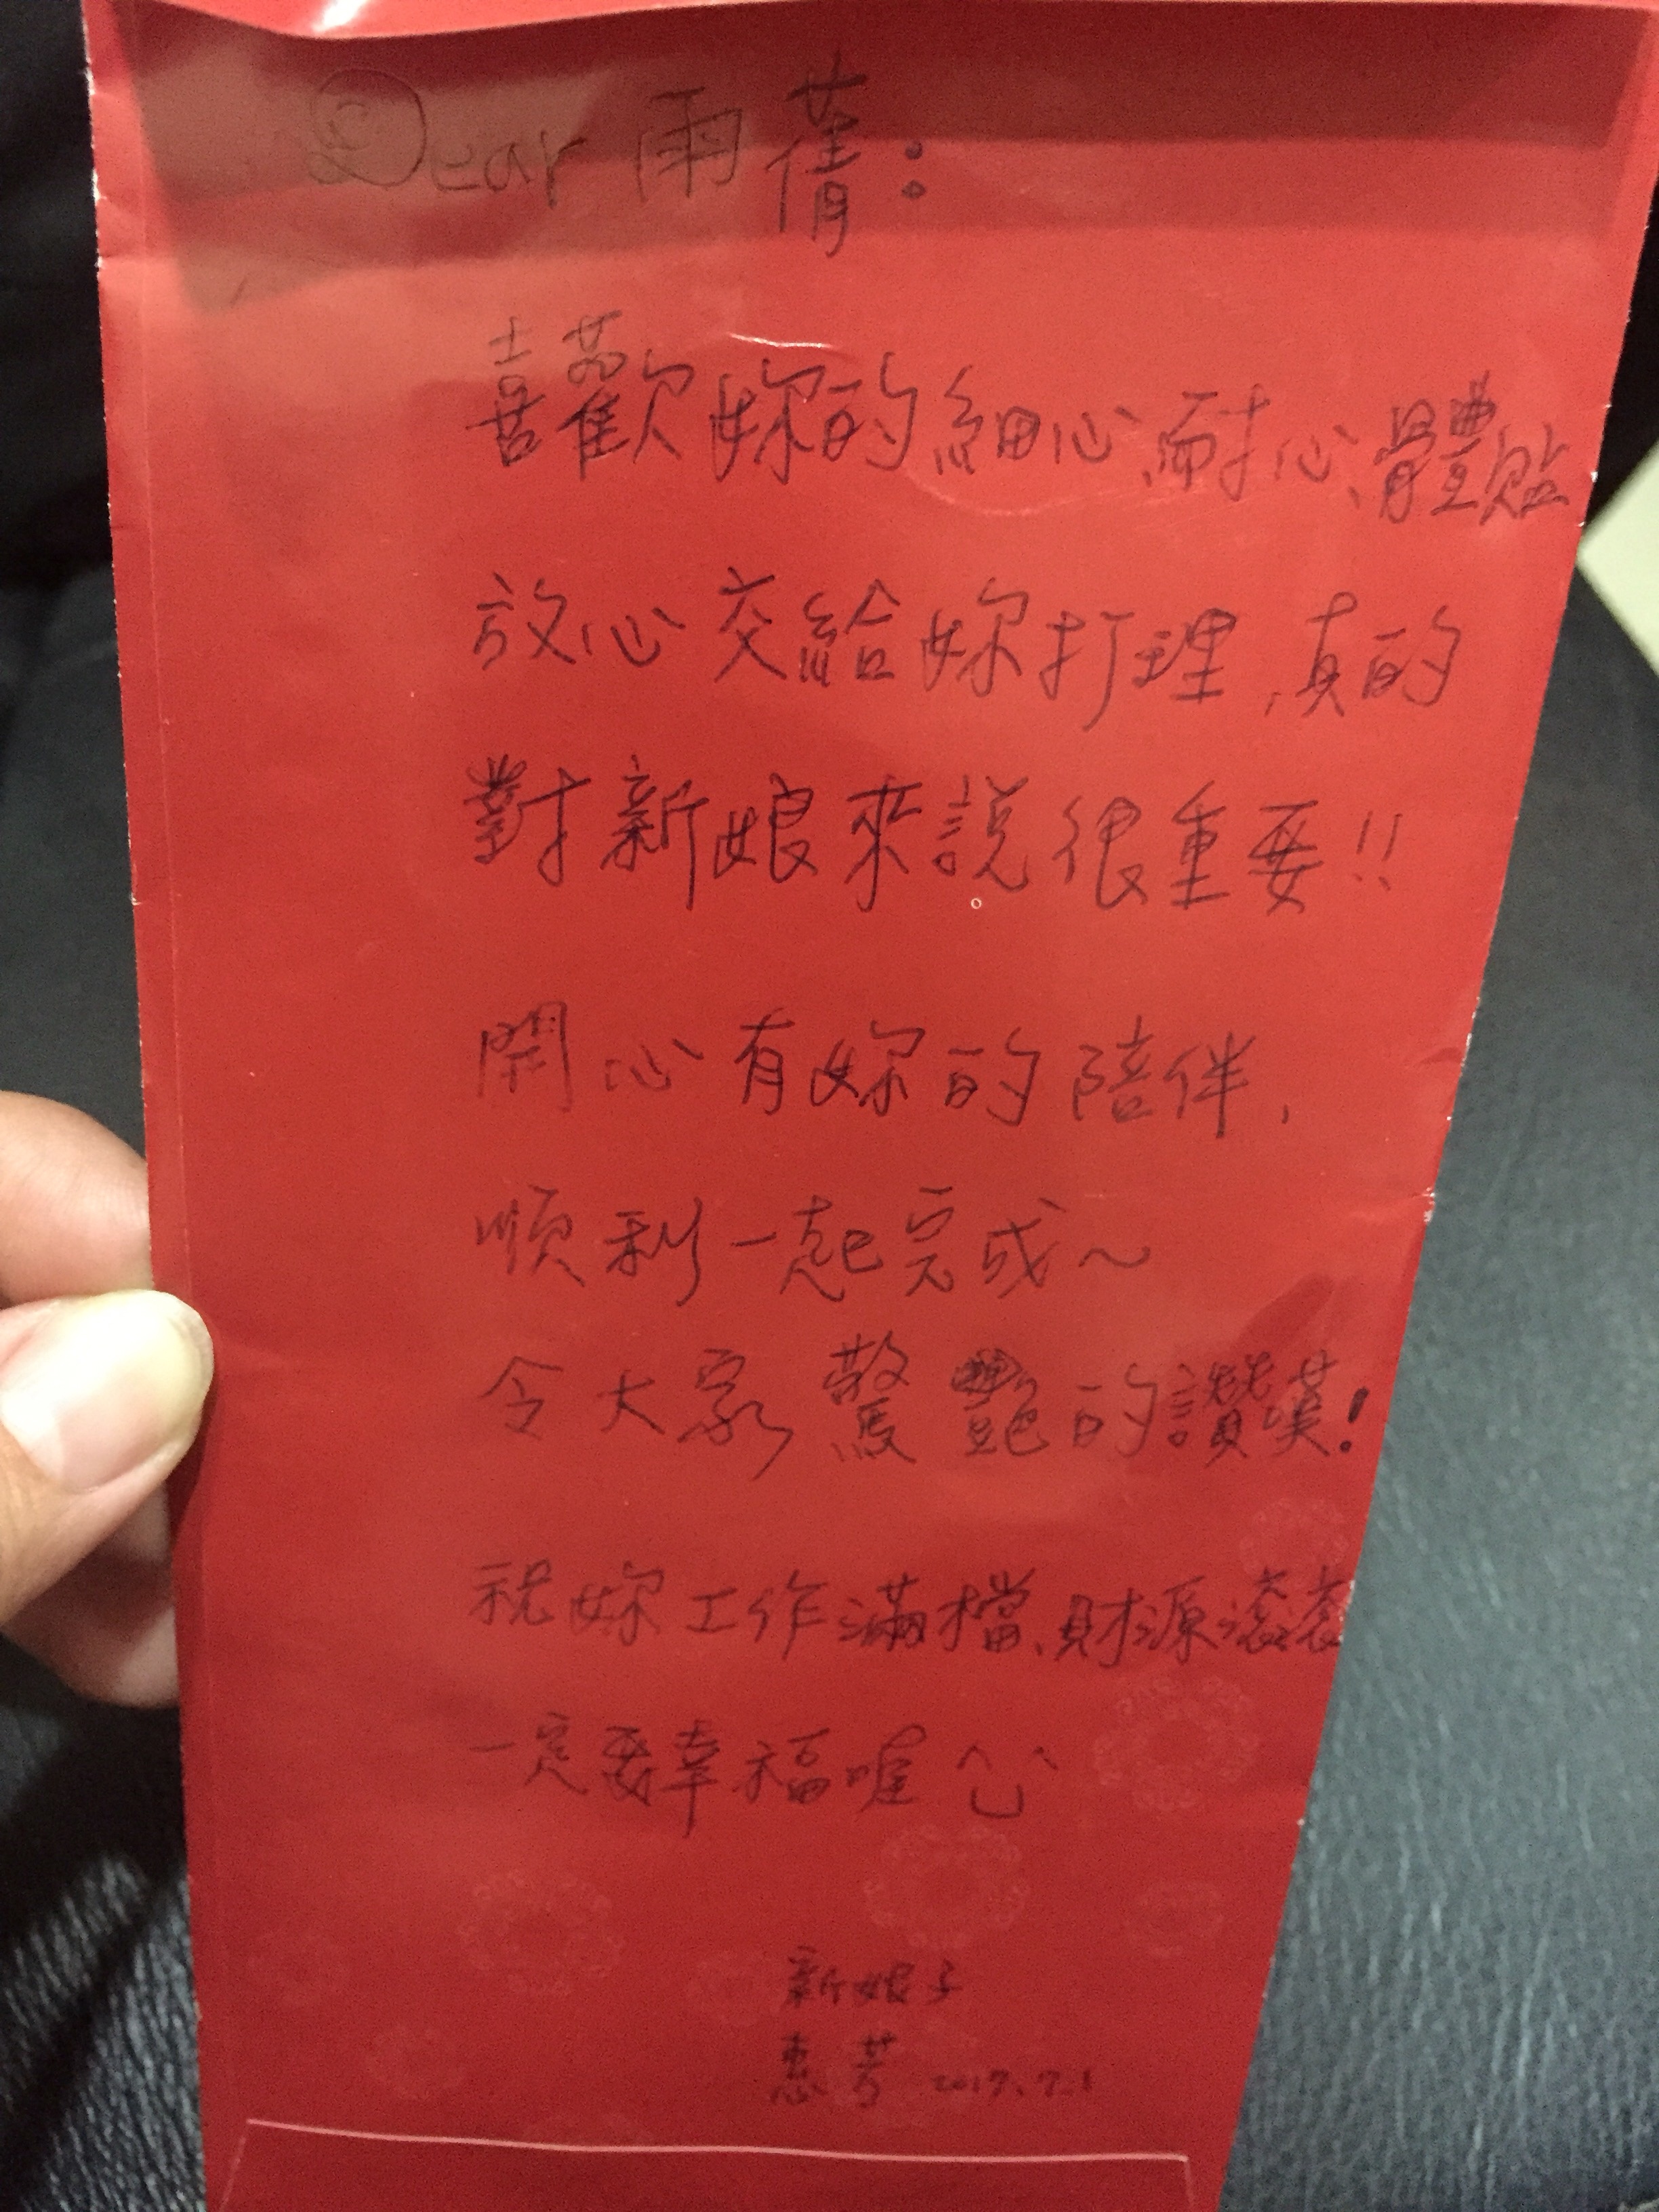 Dear 雨蒨：
喜歡妳的細心、耐心、體貼
放心交給妳打理，真的
對新娘來說很重要!!
開心有妳的陪伴，
順利一起完成～
令大家驚艷的讚嘆!
祝妳工作滿檔、財源滾滾
一定要幸福喔 ^◡^
新娘子
惠芳 2017.7.1